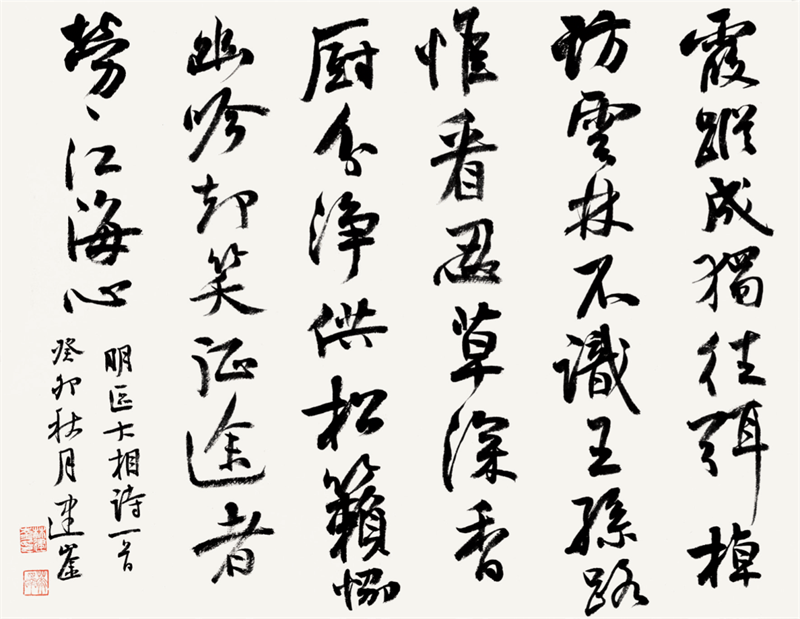 霞蹤成獨往弭棹
訪雲林不識王孫路
惟看忍草深香
厨分淨供松籟愜
幽吟却笑征途者
勞々江海心
明区大相詩一首
癸卯秋月建